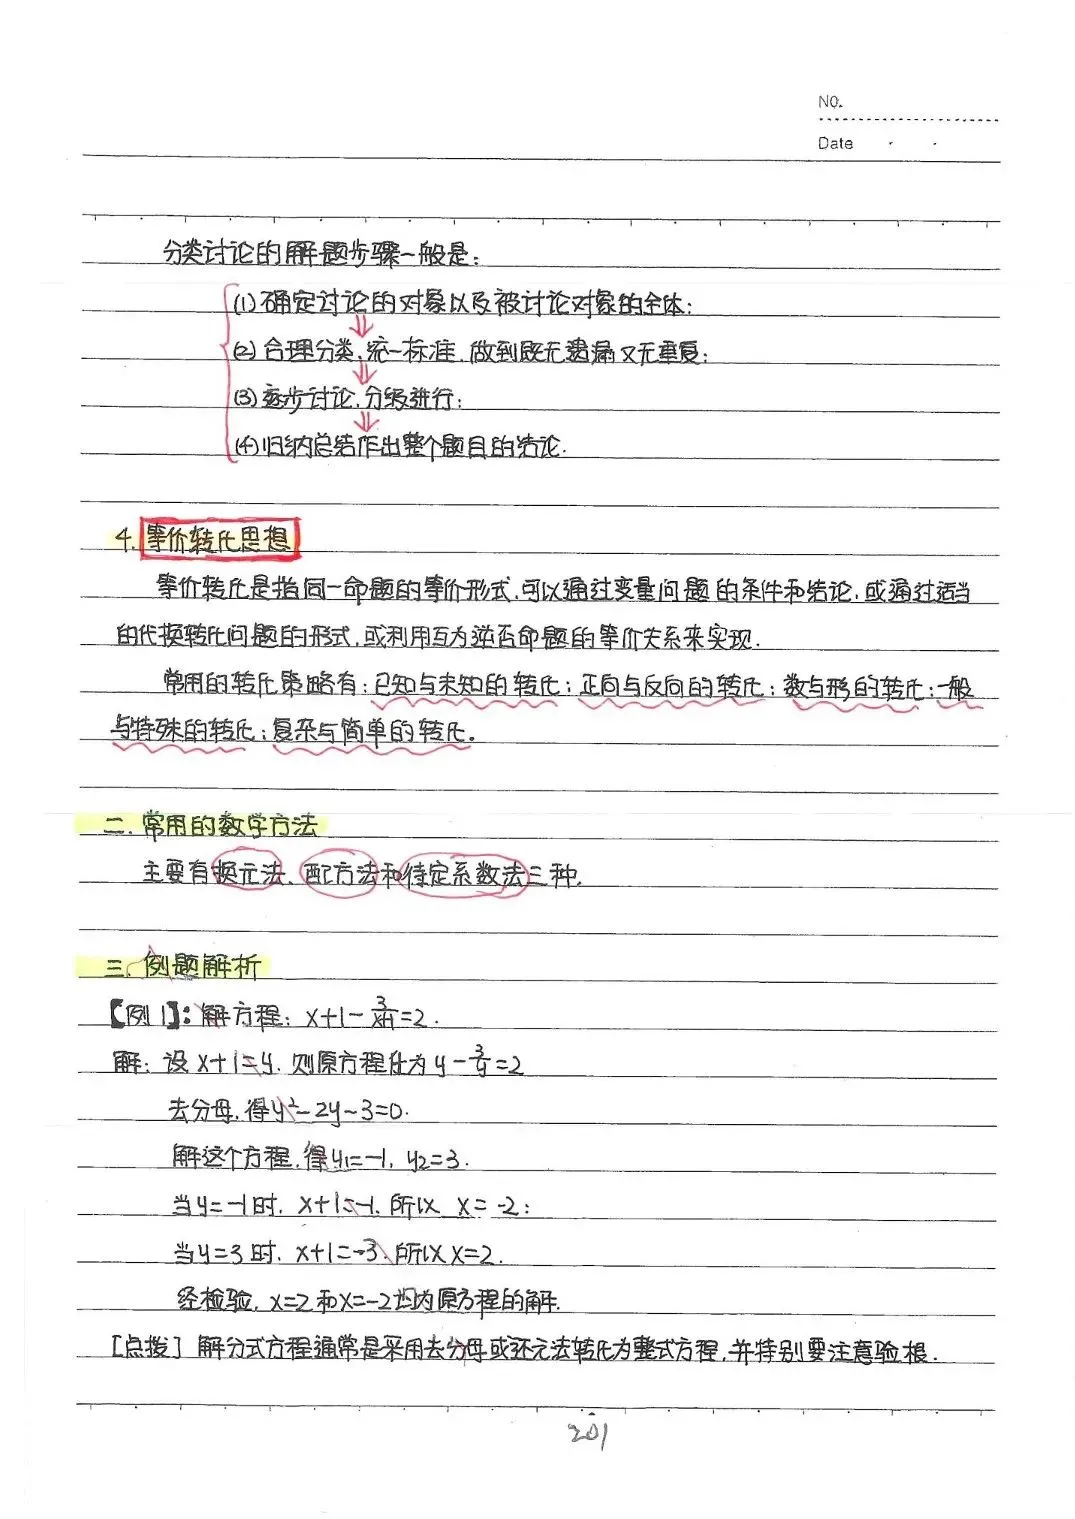 NO.
Date
分类讨论的解题步骤一般是:
(1)确定讨论的对象以及被讨论对象的全体;
(2)合理分类,统一标准,做到既无遗漏又无重复;
(3)逐步讨论,分级进行;
(4)归纳总结作出整个题目的结论.
4.等价转化思想
等价转化是指同一命题的等价形式,可以通过变量问题的条件和结论,或通过适当
的代换转化问题的形式,或利用互为逆否命题的等价关系来实现.
常用的转化策略有:已知与未知的转化;正向与反向的转化;数与形的转化;一般
与特殊的转化;复杂与简单的转化。
二.常用的数学方法
主要有换元法、配方法和待定系数法三种.
三.例题解析
【例1】:解方程:x+1-3/(x+1)=2.
解:设x+1=y,则原方程化为y-3/y=2
去分母,得y²-2y-3=0.
解这个方程,得y₁=-1,y₂=3.
当y=-1时,x+1=-1,所以x=-2;
当y=3时,x+1=3,所以x=2.
经检验,x=2和x=-2均为原方程的解.
[点拨]解分式方程通常是采用去分母或还元法转化为整式方程,并特别要注意验根.
201